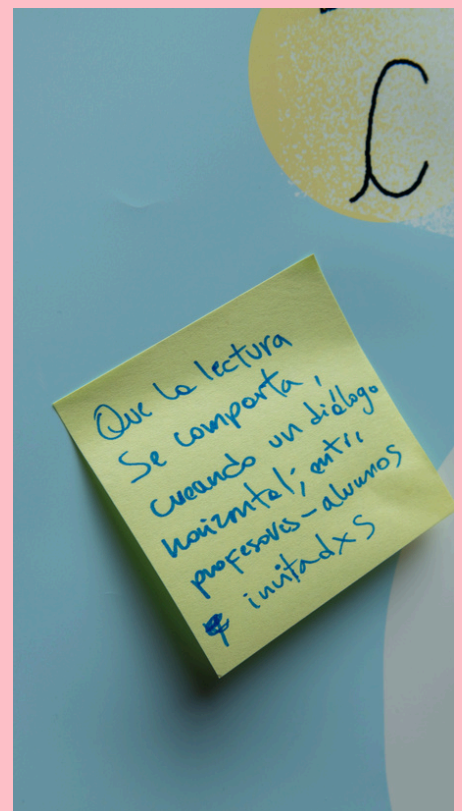 C
Que la lectura
Se comparta,
creando un diálogo
horizontal; entre
profesores-alumnos
invitadxs